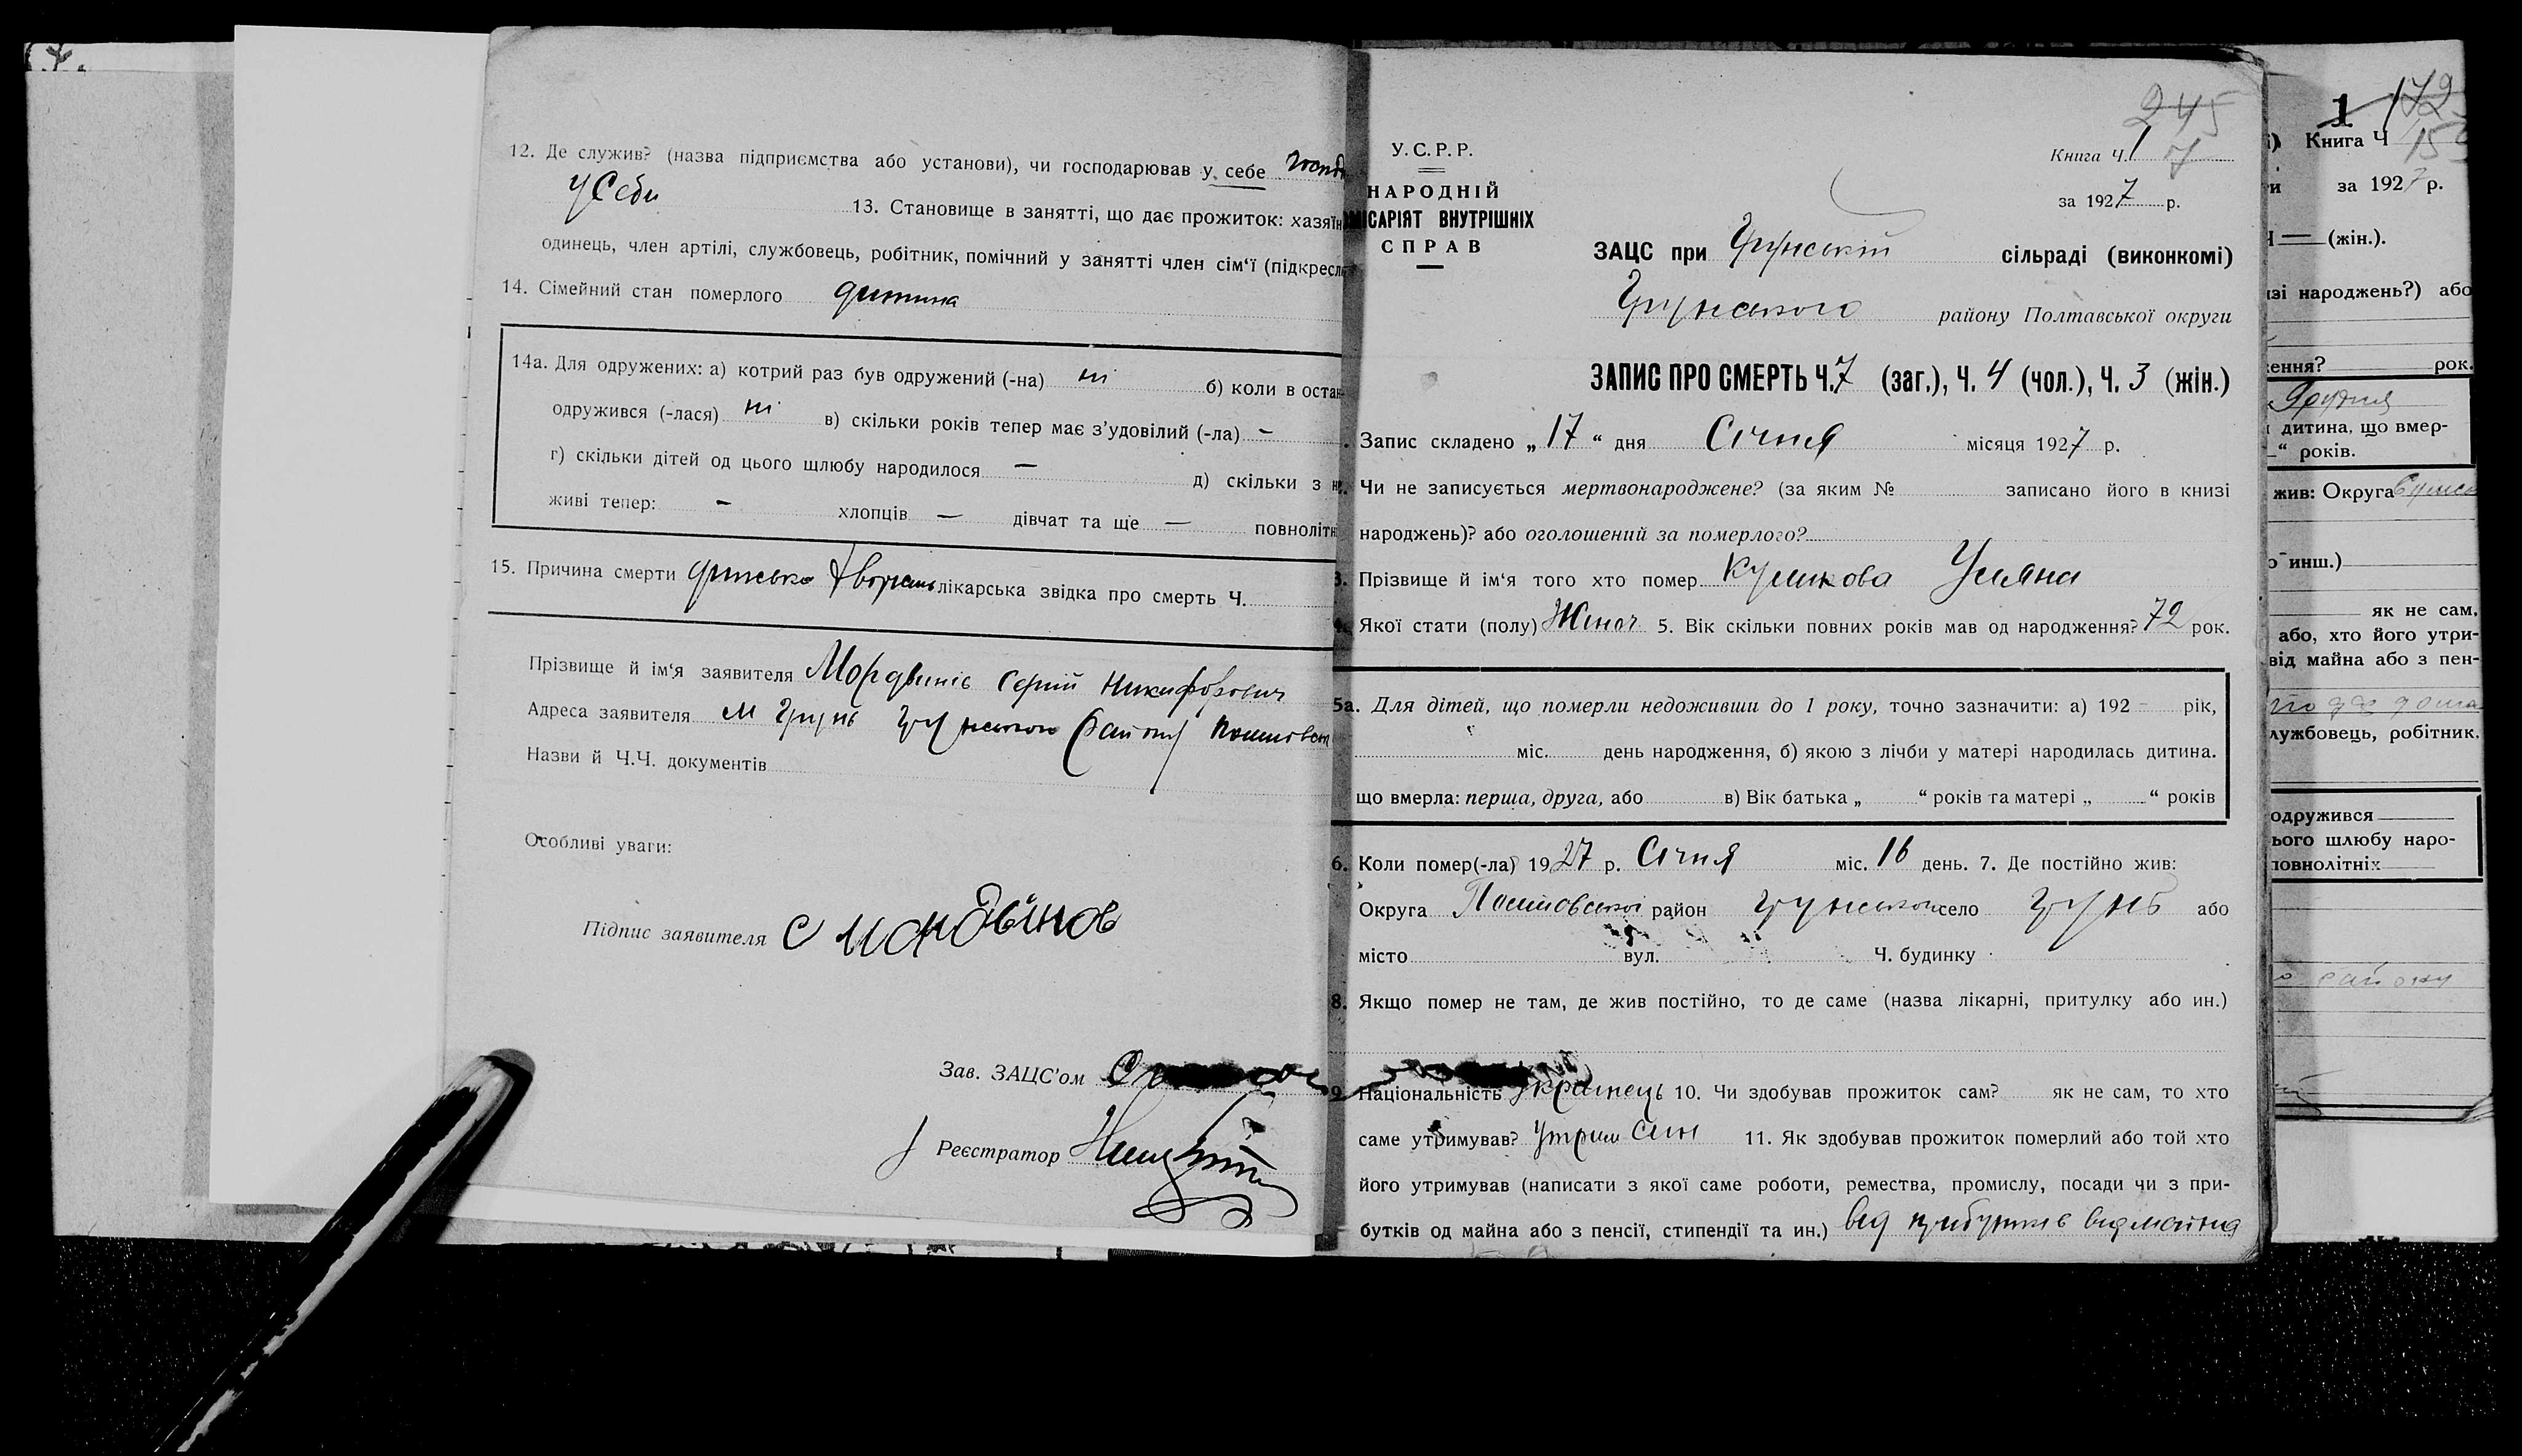 12. Де служив? (назва підприємства або установи), чи господарював у себе
у Себи
13. Становище в занятті, що дає прожиток: хазяїн
одинець, член артілі, службовець, робітник, помічний у занятті член сім'ї (підкресл
14. Сімейний стан померлого дитина
14а. Для одружених: а) котрий раз був одружений (-на) ні б) коли в остан-
одружився (-лася) ні в) скільки років тепер має з'удовілий (-ла) —
г) скільки дітей од цього шлюбу народилося — д) скільки з н
живі тепер: — хлопців — дівчат та ще — повноліт
15. Причина смерти лікарська звідка про смерть Ч.
Прізвище й ім'я заявителя Мордвинів Сергій Никифорович
Адреса заявителя М Грунь Грунського району
Назви й Ч.Ч. документів
Особливі уваги:
Підпис заявителя С Мордвінов
Зав. ЗАЦС'ом
Реєстратор
У.С.Р.Р.
НАРОДНІЙ
МІСАРІЯТ ВНУТРІШНІХ
СПРАВ
245
Книга Ч. 1 7
за 1927 р.
ЗАЦС при Грунській сільраді (виконкомі)
Грунського району Полтавської округи
ЗАПИС ПРО СМЕРТЬ Ч. 7 (заг.), Ч. 4 (чол.), Ч. 3 (жін.)
Запис складено „ 17 “ дня Січня місяця 1927 р.
Чи не записується мертвонароджене? (за яким № записано його в книзі
народжень)? або оголошений за померлого?
3. Прізвище й ім'я того хто помер Куликова Уляна
4. Якої стати (полу) Жіноч 5. Вік скільки повних років мав од народження? 72 рок.
5а. Для дітей, що померли недоживши до 1 року, точно зазначити: а) 192 - рік,
міс. день народження, б) якою з лічби у матері народилась дитина.
що вмерла: перша, друга, або в) Вік батька „ “ років та матері „ “ років
6. Коли помер(-ла) 1927 р. Січня міс. 16 день. 7. Де постійно жив:
Округа район Грунськой село Грунь або
місто вул. Ч. будинку
8. Якщо помер не там, де жив постійно, то де саме (назва лікарні, притулку або ин.)
9. Національність Українець 10. Чи здобував прожиток сам? як не сам, то хто
саме утримував? Утрим син 11. Як здобував прожиток померлий або той хто
його утримував (написати з якої саме роботи, ремества, промислу, посади чи з при-
бутків од майна або з пенсії, стипендії та ин.) від прибутків від майна
1 172
Книга Ч 155
и за 1927 р.
Ч — (жін.).
зі народжень?) або
ення? рок.
Грудня
дитина, що вмер-
“ років.
жив: Округа
о инш.)
як не сам,
або, хто його утри-
від майна або з пен-
лужбовець, робітник,
одружився
ього шлюбу наро-
повнолітніх
району